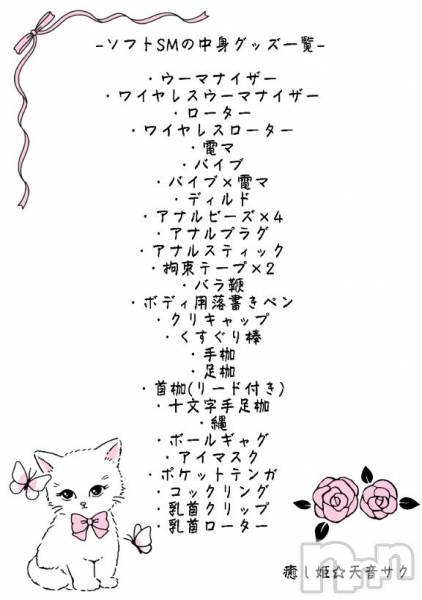 -ソフトSMの中身グッズ一覧-
・ウーマナイザー
・ワイヤレスウーマナイザー
・ローター
・ワイヤレスローター
・電マ
・バイブ
・バイブ×電マ
・ディルド
・アナルビーズ×4
・アナルプラグ
・アナルスティック
・拘束テープ×2
・バラ鞭
・ボディ用落書きペン
・クリキャップ
・くすぐり棒
・手枷
・足枷
・首枷(リード付き)
・十文字手足枷
・縄
・ボールギャグ
・アイマスク
・ポケットテンガ
・コックリング
・乳首クリップ
・乳首ローター
癒し姫☆天音サク